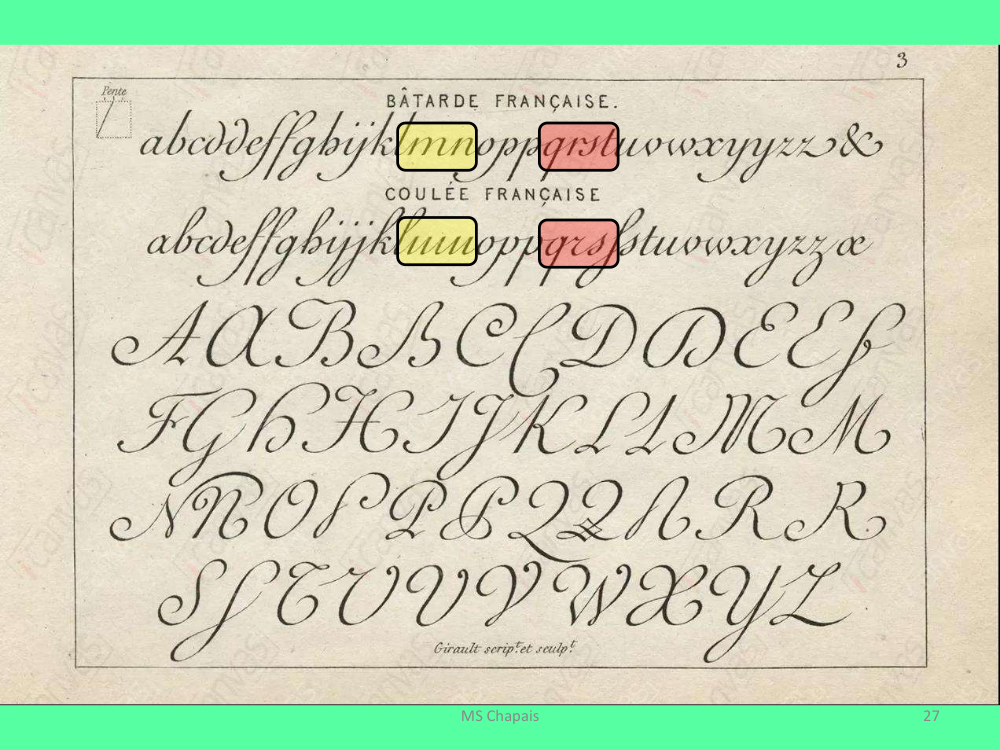 3
Pente
BÂTARDE FRANÇAISE.
abcddeffghijklmnoppqrstuvwxyyzz &
COULÉE FRANÇAISE
abcdeffghijjklmnoppqrsſstuvwxyzzæ
AABBCCDDEEE
FGHHIJKLLMM
NNOPPPQQRRR
SSTUUVWXYZ
Girault scrip.t et sculp.t
MS Chapais
27